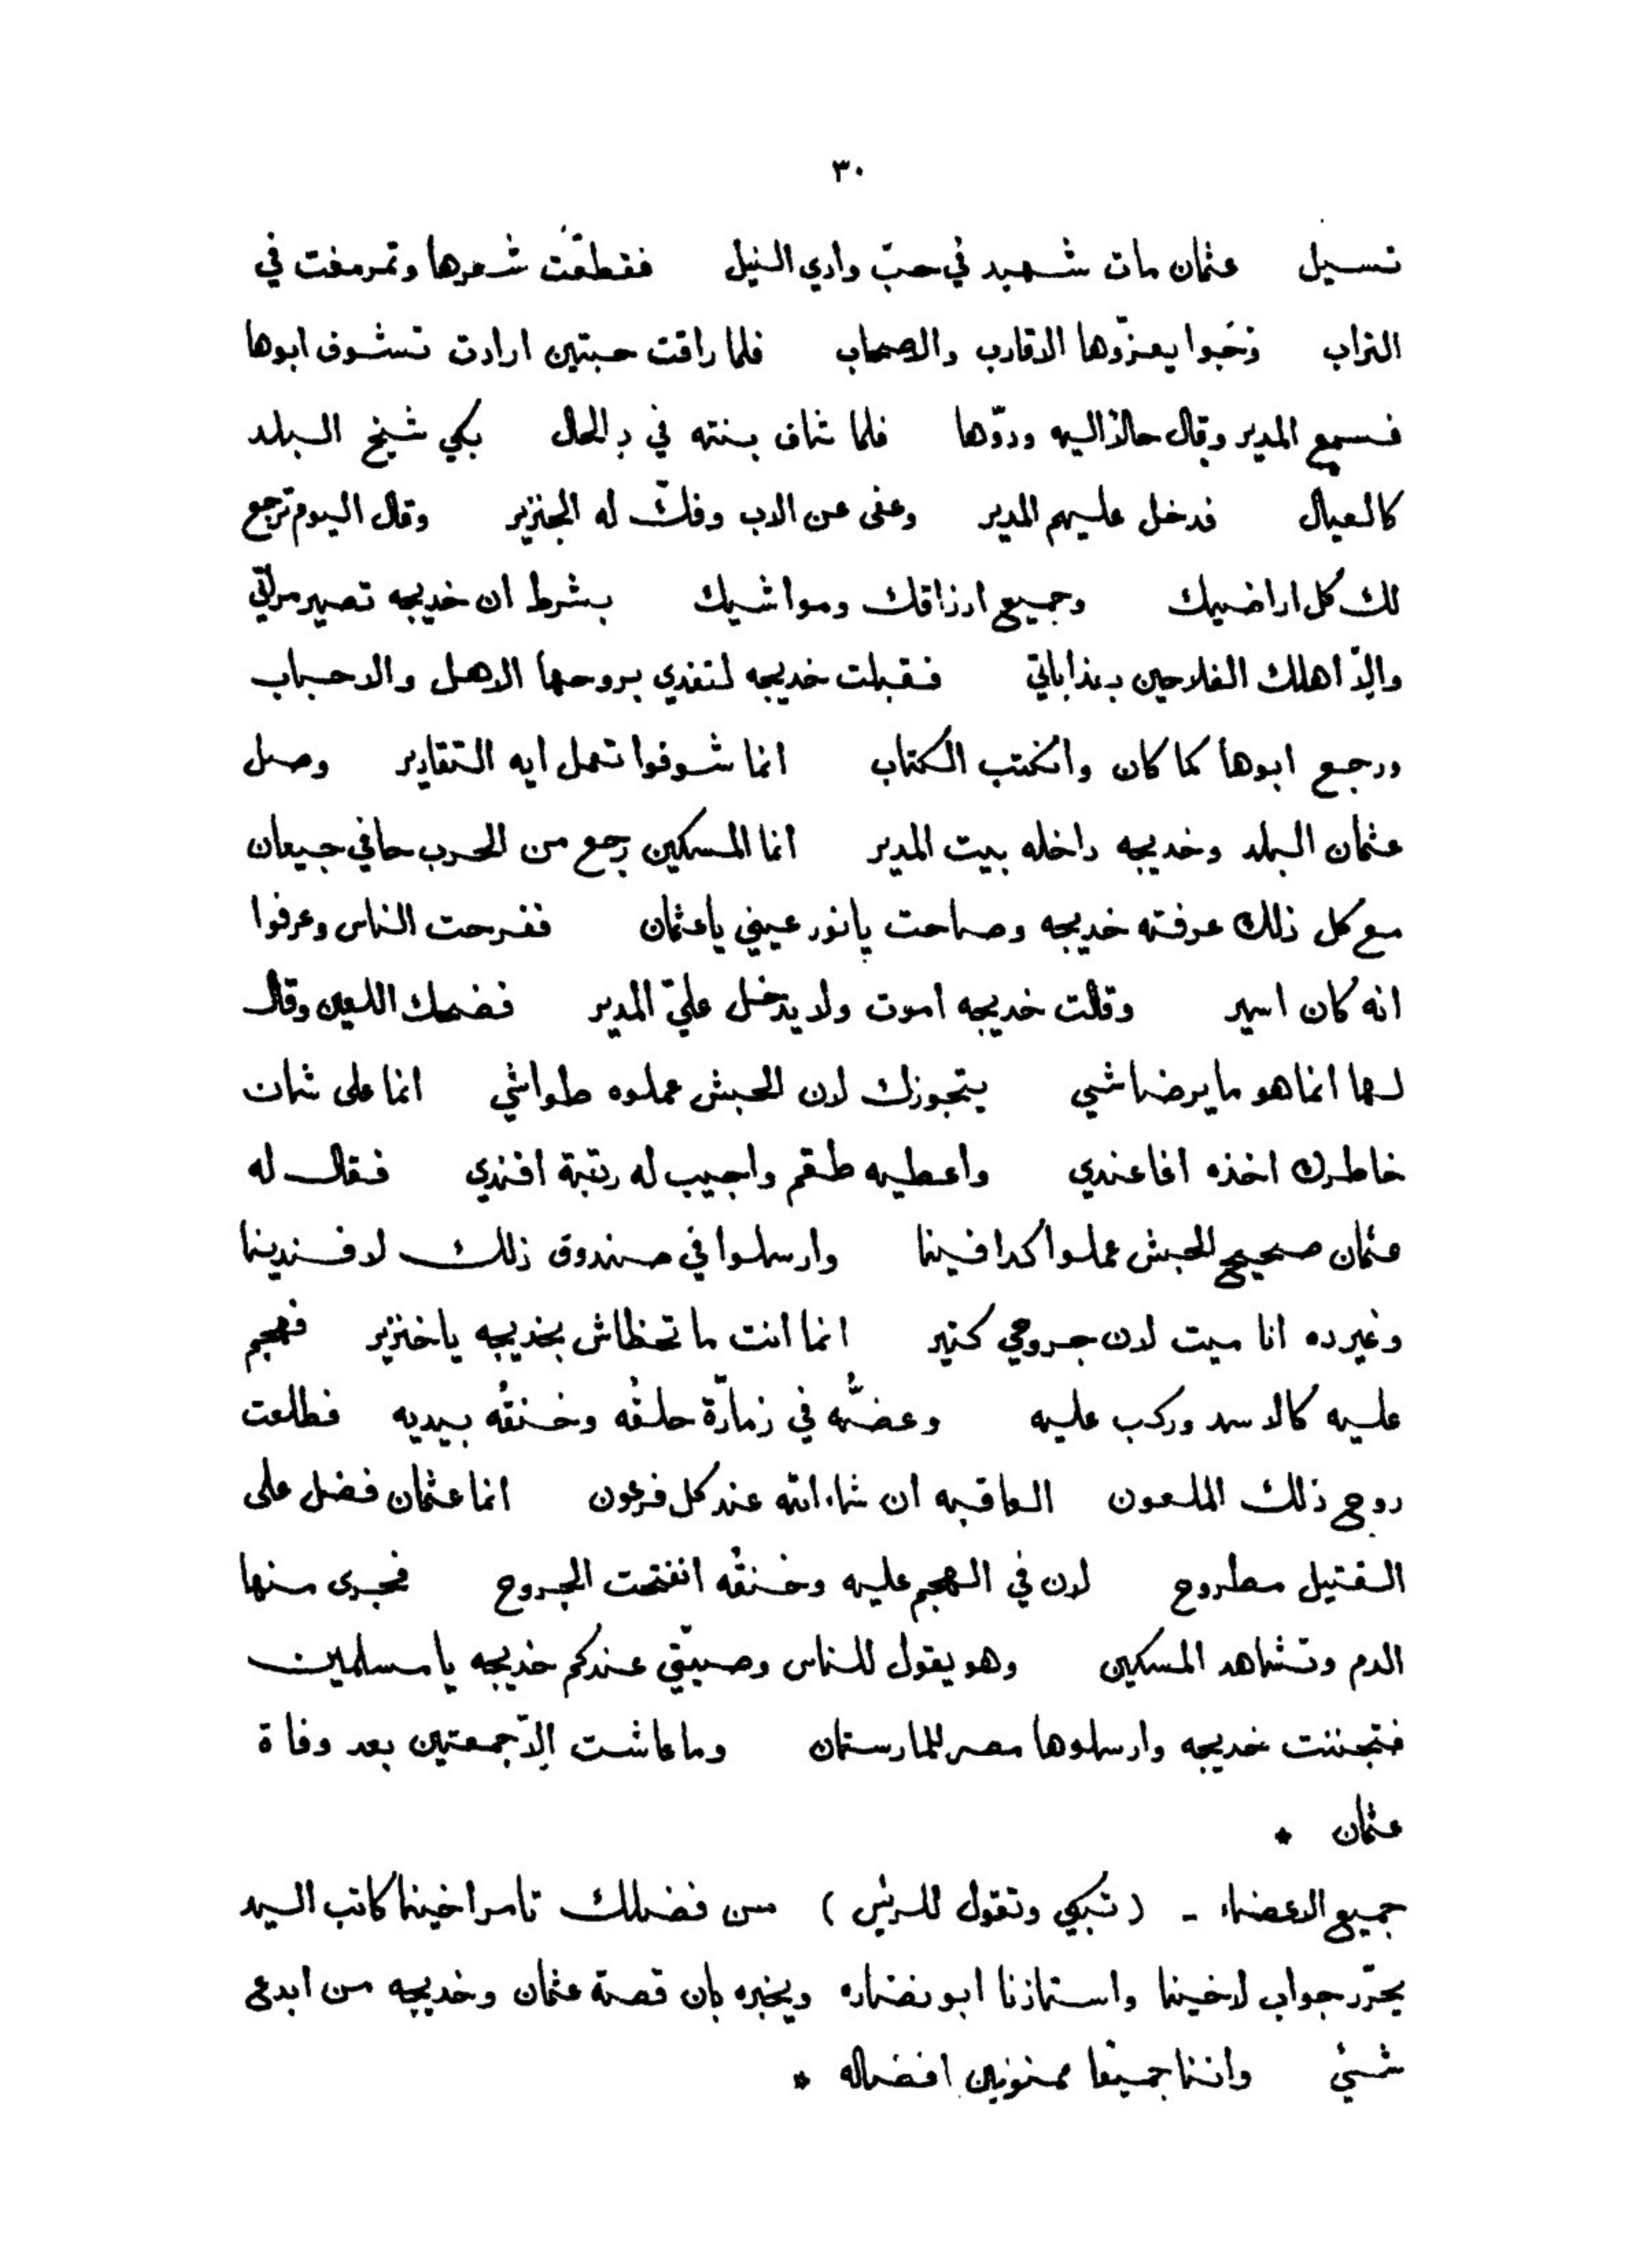 ٣٠
تسيل عثمان مات شهيد في حبّ وادي النيل فقطعّت شعرها وتمرمغت في
التراب وتخبوا يعزّوها الاقارب والاصحاب فلما راقت حبتين ارادت تشوف ابوها
فسمع المدير وقال حالاً اليه ودوّها فلما شاف بنته في دِالحال بكي شيخ البلد
كالعيال فدخل عليهم المدير وعفى عن الاب وفكّ له الجنزير وقال اليوم ترجع
لك كل اراضيك وجميع ارزاقك ومواشيك بشرط ان خديجه تصير مراتّي
والاّ اهلك الفلاحين بعذاباتي فقبلت خديجه لتفدي بروحها الاهل والاحباب
ورجع ابوها كما كان وانكتب الكتاب انما شوفوا تعمل ايه التقادير وصل
عثمان البلد وخديجه داخله بيت المدير انما المسكين رجع من الحرب حافي جيعان
مع كل ذلك عرفته خديجه وصاحت يا نور عيني يا عثمان ففرحت الناس وعرفوا
انه كان اسير وقالت خديجه اموت ولا يدخل عليّ المدير فضحك اللعين وقال
لها انما هو ما يرضاشي يتجوزك لان الحبش عملوه طواشي انما على شان
خاطرك اخذه اغا عندي واعطيه طقم واجيب له رتبة افندي فقال له
عثمان صحيح الحبش عملوا كدا فينا وارسلوا في صندوق ذلك لافندينا
وغيرده انا ميت لان جروحي كتير انما انت ما تحظاش بخديجه يا خنزير فهجم
عليه كالاسد وركب عليه وعضُّه في زمارّة حلقُه وخنقُه بيديه فطلعت
روح ذلك الملعون العاقبه ان شاء الله عند كل فرعون انما عثمان فضل على
القتيل مطروح لان في الهجم عليه وخنقُه انفتحت الجروح فجرى منها
الدم وتشاهد المسكين وهو يقول للناس وصيتّي عندكم خديجه يا مسلمين
فتجننت خديجه وارسلوها مصر للمارستان وما عاشت الاّ جمعتين بعد وفاة
عثمان *
جميع الاعضاء - (تبكي وتقول للريس) من فضلك تامر اخينا كاتب السيد
يحرّر جواب لاخينا واستاذنا ابو نضاره ويخبره بان قصة عثمان وخديجه من ابدع
شئي واننا جميعًا ممنونين افضاله *